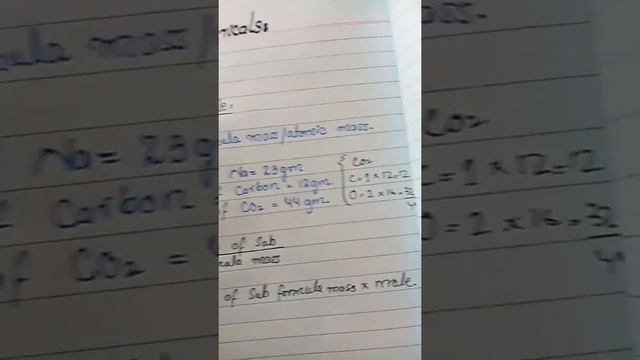 micals:
ula mass/atomic mass.
Na = 23gm
Carbon = 12gm
of CO2 = 44 gm
CO2
C = 1 × 12 = 12
O = 2 × 16 = 32
of Sub
ula mass
of Sub formula mass × mole.